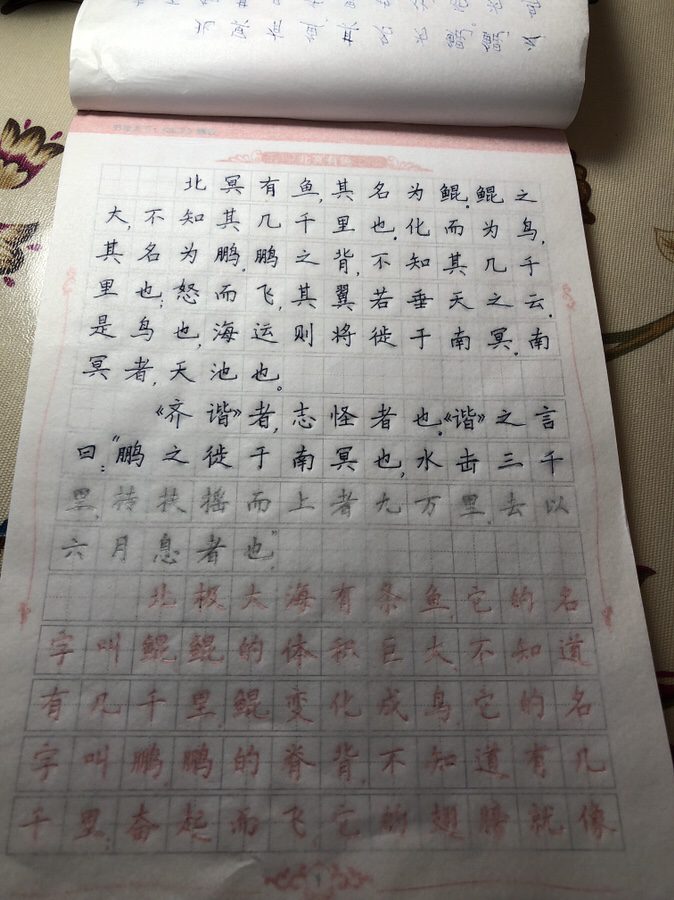 北冥有鱼,其名为鲲。鲲之
大,不知其几千里也。化而为鸟,
其名为鹏。鹏之背,不知其几千
里也;怒而飞,其翼若垂天之云。
是鸟也,海运则将徙于南冥。南
冥者,天池也。
《齐谐》者,志怪者也。《谐》之言
曰:“鹏之徙于南冥也,水击三千
里,抟扶摇而上者九万里,去以
六月息者也。”
北极大海有条鱼,它的名
字叫鲲,鲲的体积巨大,不知道
有几千里,鲲变化成鸟,它的名
字叫鹏,鹏的脊背,不知道有几
千里;奋起而飞,它的翅膀就像